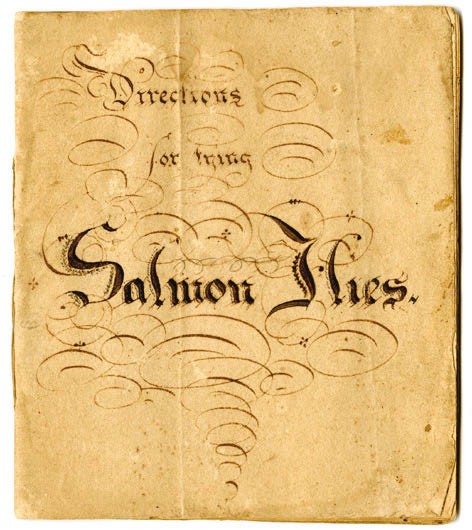 Directions
for tying
Salmon Flies.